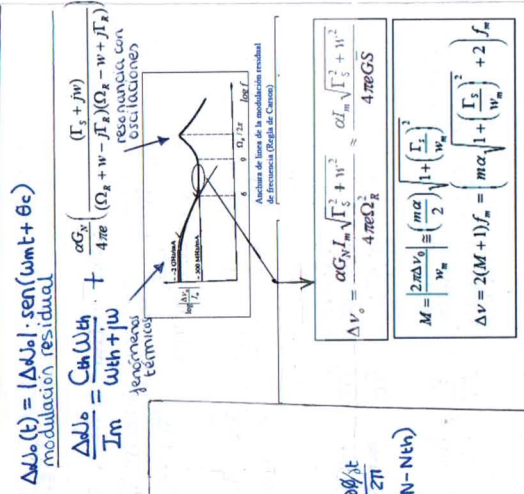 Δω₀(t) = |Δω₀| · sen(ωmt + θc)
modulación residual
Δω₀/Im = CthWth/(Wth + jw) + αG_N/4πe ((Γ_S + jw)/((Ω_R + w − jΓ_R)(Ω_R − w + jΓ_R)))
fenómenos
térmicos
resonancia con
oscilaciones
log|Δν₀/I_m|
~2 GHz/mA
~300 MHz/mA
6
9
Ω_R/2π
log f
Anchura de linea de la modulación residual
de frecuencia (Regla de Carson)
Δν₀ = αG_N I_m √(Γ_S² + w²)/4πeΩ_R² ≈ αI_m √(Γ_S² + w²)/4πeGS̄
M = |2πΔν₀/w_m| ≅ (mα/2) √(1 + (Γ_S/w_m)²)
Δν = 2(M + 1)f_m = (mα √(1 + (Γ_S/w_m)²) + 2) f_m
∂ϕ/∂t
2π
N − Nth)